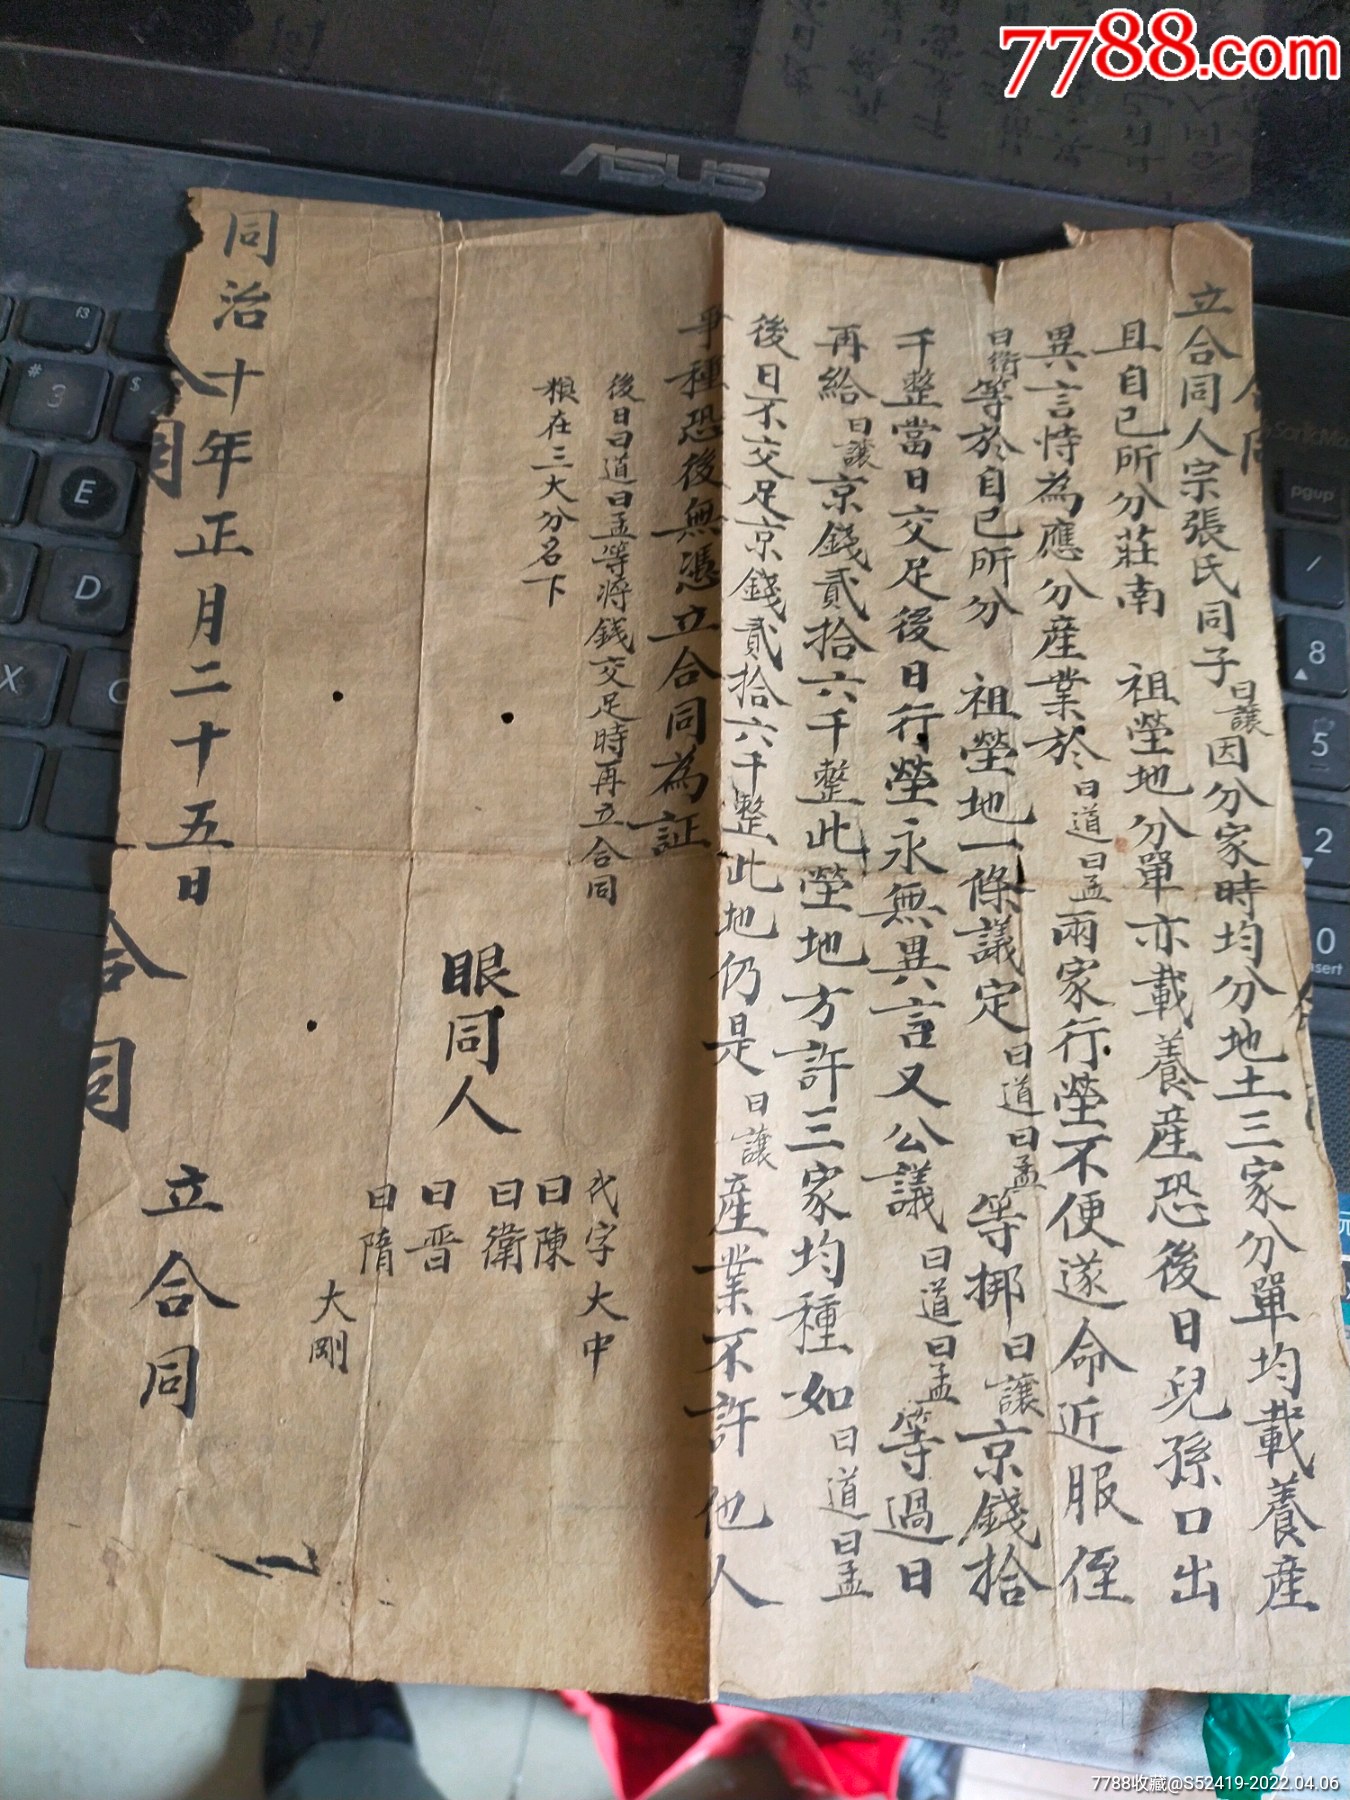 7788.com
ASUS
立合同人宗張氏同子曰讓因分家時均分地土三家分單均載養產
且自己所分莊南 祖塋地分單亦載養產恐後日兒孫口出
異言恃為應分產業於曰道曰孟兩家行塋不便遂命近服侄
曰衛等於自己所分 祖塋地一條議定曰道曰孟等挪曰讓京錢拾
千整當日交足後日行塋永無異言又公議曰道曰孟等過日
再給曰讓京錢貳拾六千整此塋地方許三家均種如曰道曰孟
後日不交足京錢貳拾六千整此地仍是曰讓產業不許他人
爭種恐後無憑立合同為証
後日曰道曰孟等將錢交足時再立合同
粮在三大分名下
眼同人
代字大中
曰陳
曰衛
曰晋
曰隋
大剛
同治十年正月二十五日
立合同
合同
合同
f3
#
3
$
E
D
X
C
pgup
/
8
5
2
0
insert
7788收藏@S52419-2022.04.06